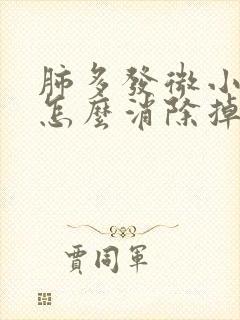 肺多發微小
怎麼消除掉
賈同軍